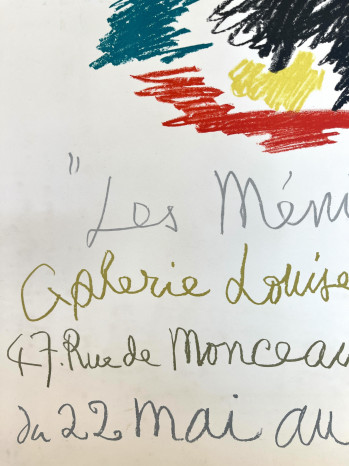 "Les Méni
Galerie Louise
47. Rue de Monceau
du 22 mai au